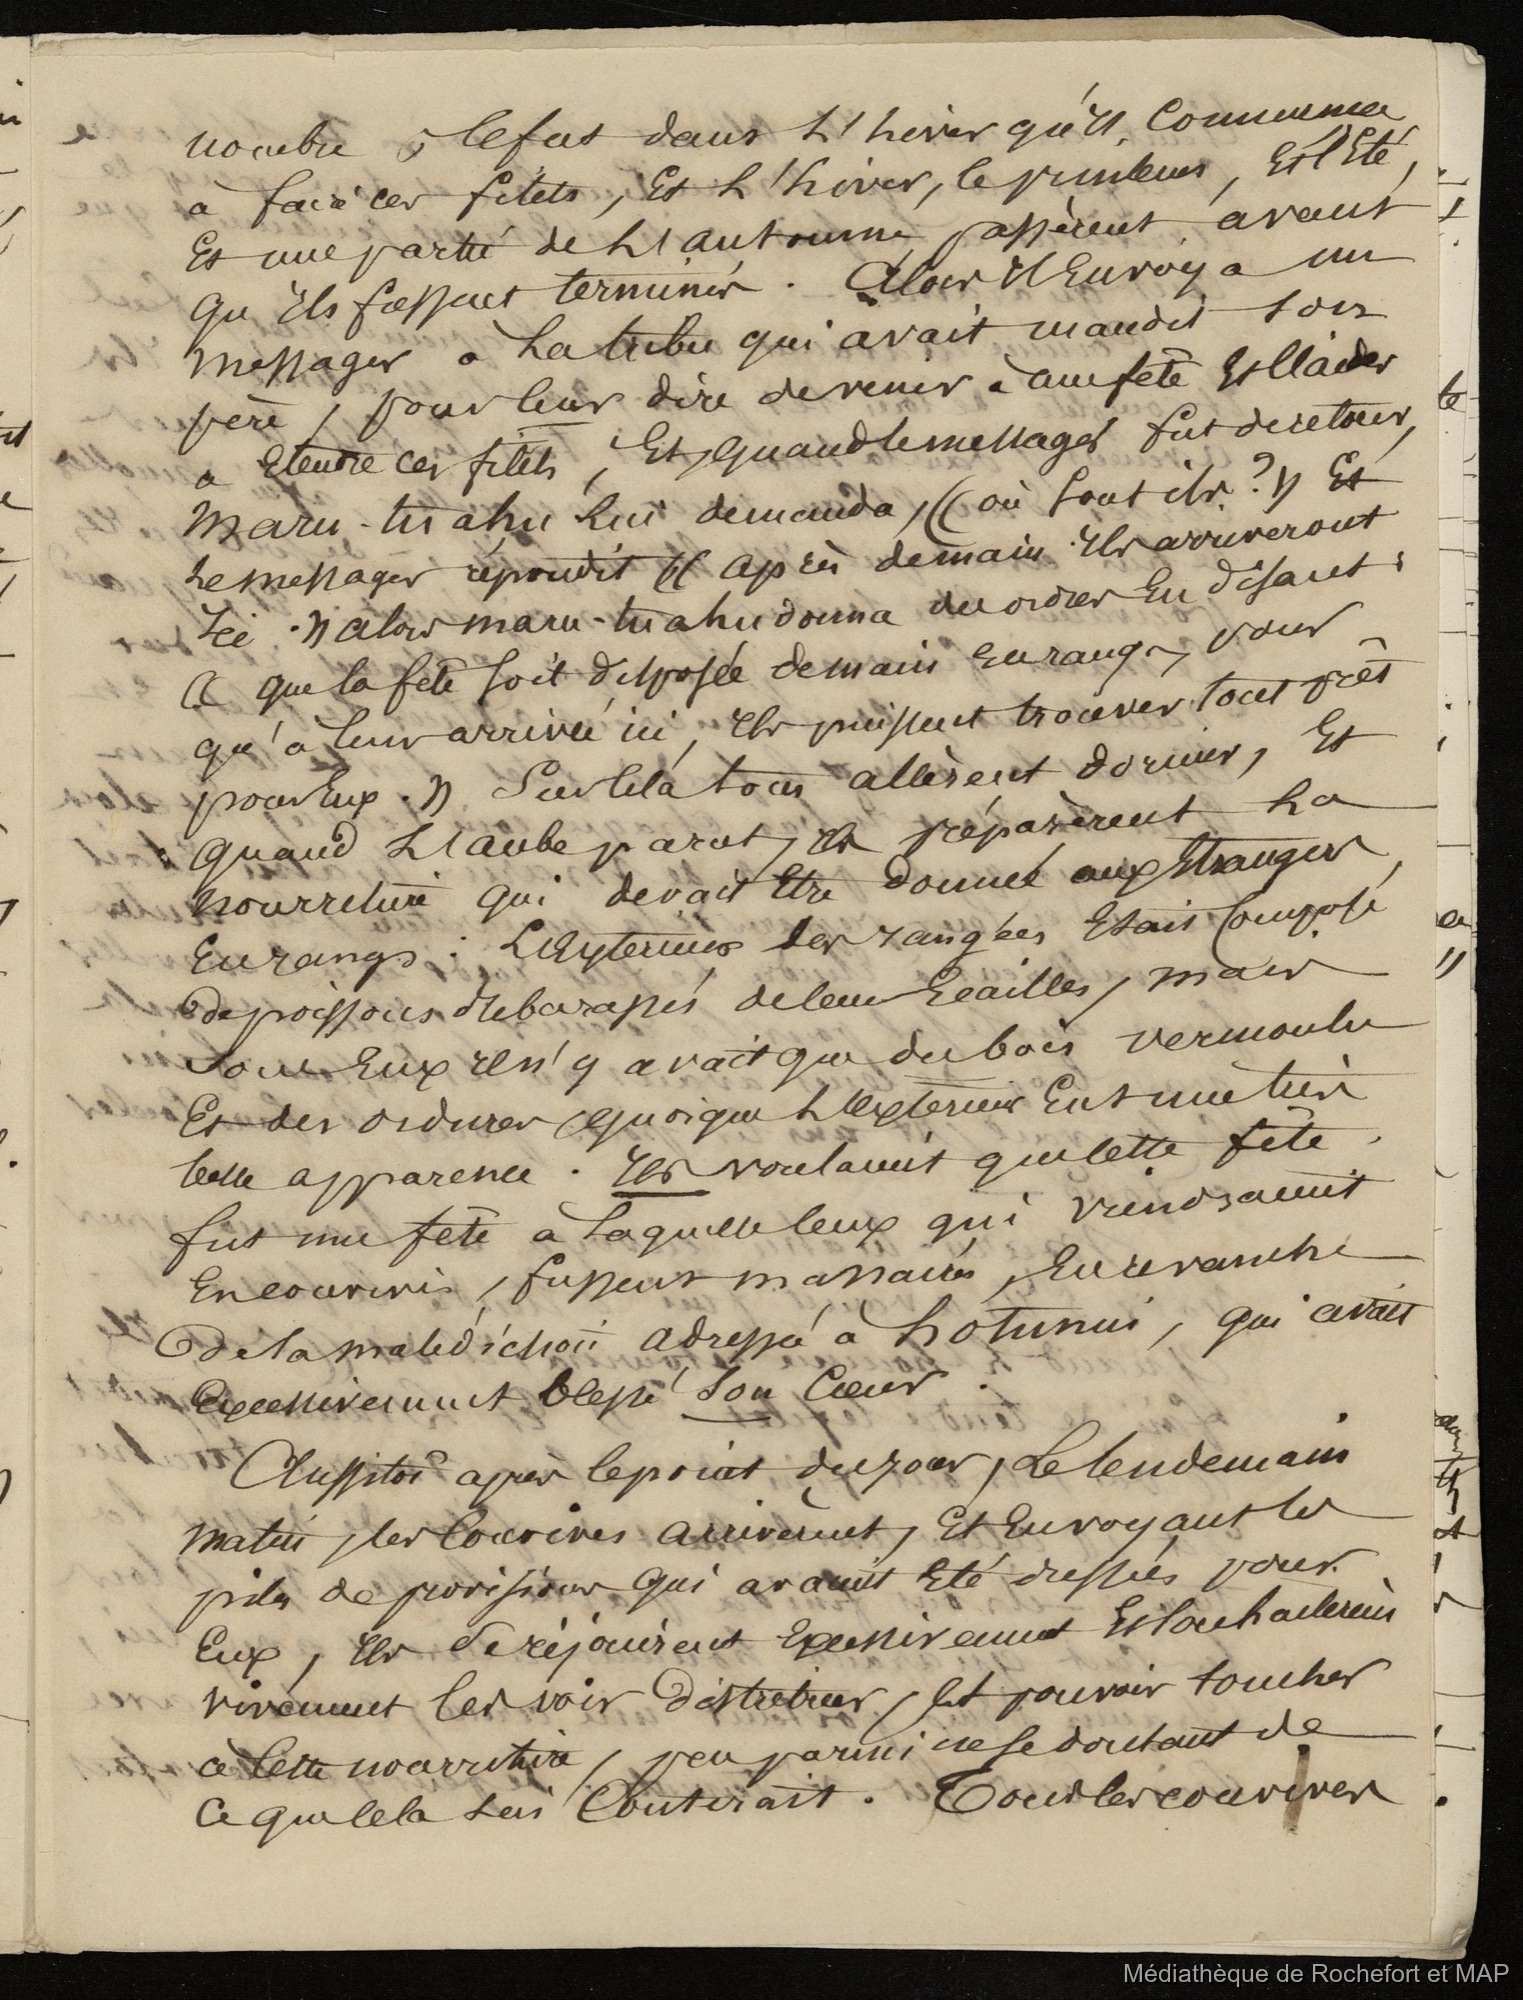 nombre, Ce fut dans l'hiver qu'il commença
à faire ces filets, Et l'hiver, le printems, Et l'Eté,
Et une partie de l'automne passèrent avant
qu'ils fussent terminés. Alors Il Envoya un
messager à la tribu qui avait maudit son
père, pour leur dire de venir à une fête Et l'aider
à Etendre ces filets, Et, quand le messager fut de retour,
Maru-tuahu lui demanda, « où sont ils ? » Et
le messager répondit « Après demain Ils arriveront
Ici. » alors maru-tuahu donna des ordres En disant :
« que la fête soit disposée demain En rangs, pour
qu'à leur arrivée ici, Ils puissent trouver tout prêt
pour Eux. » Sur Cela tous allèrent dormir, Et
quand l'aube parut, Ils préparèrent la
nourriture qui devait Etre donnée aux Etrangers,
En rangs. L'Extérieur des rangées Etait Composé
de poissons débarassés de leurs Ecailles, mais
sous Eux Il n'y avait que du bois vermoulu
Et des ordures, quoique l'extérieur Eut une très
belle apparence. Ils voulaient que Cette fête
fut une fête à laquelle Ceux qui viendraient
En convives, fussent massacrés, En revanche
de la malédiction adressée à Hotunui, qui avait
Excessivement blessé son Cœur.
Aussitôt après le point du jour, Le lendemain
matin, les Convives arrivèrent, Et En voyant les
piles de provisions qui avaient Eté dressées pour
Eux, Ils se réjouirent Excessivement Et souhaitèrent
vivement les voir distribuer, Et pouvoir toucher
à Cette nourriture, peu parmi se doutant de
Ce que Cela lui Couterait. Tous les convives
Médiathèque de Rochefort et MAP